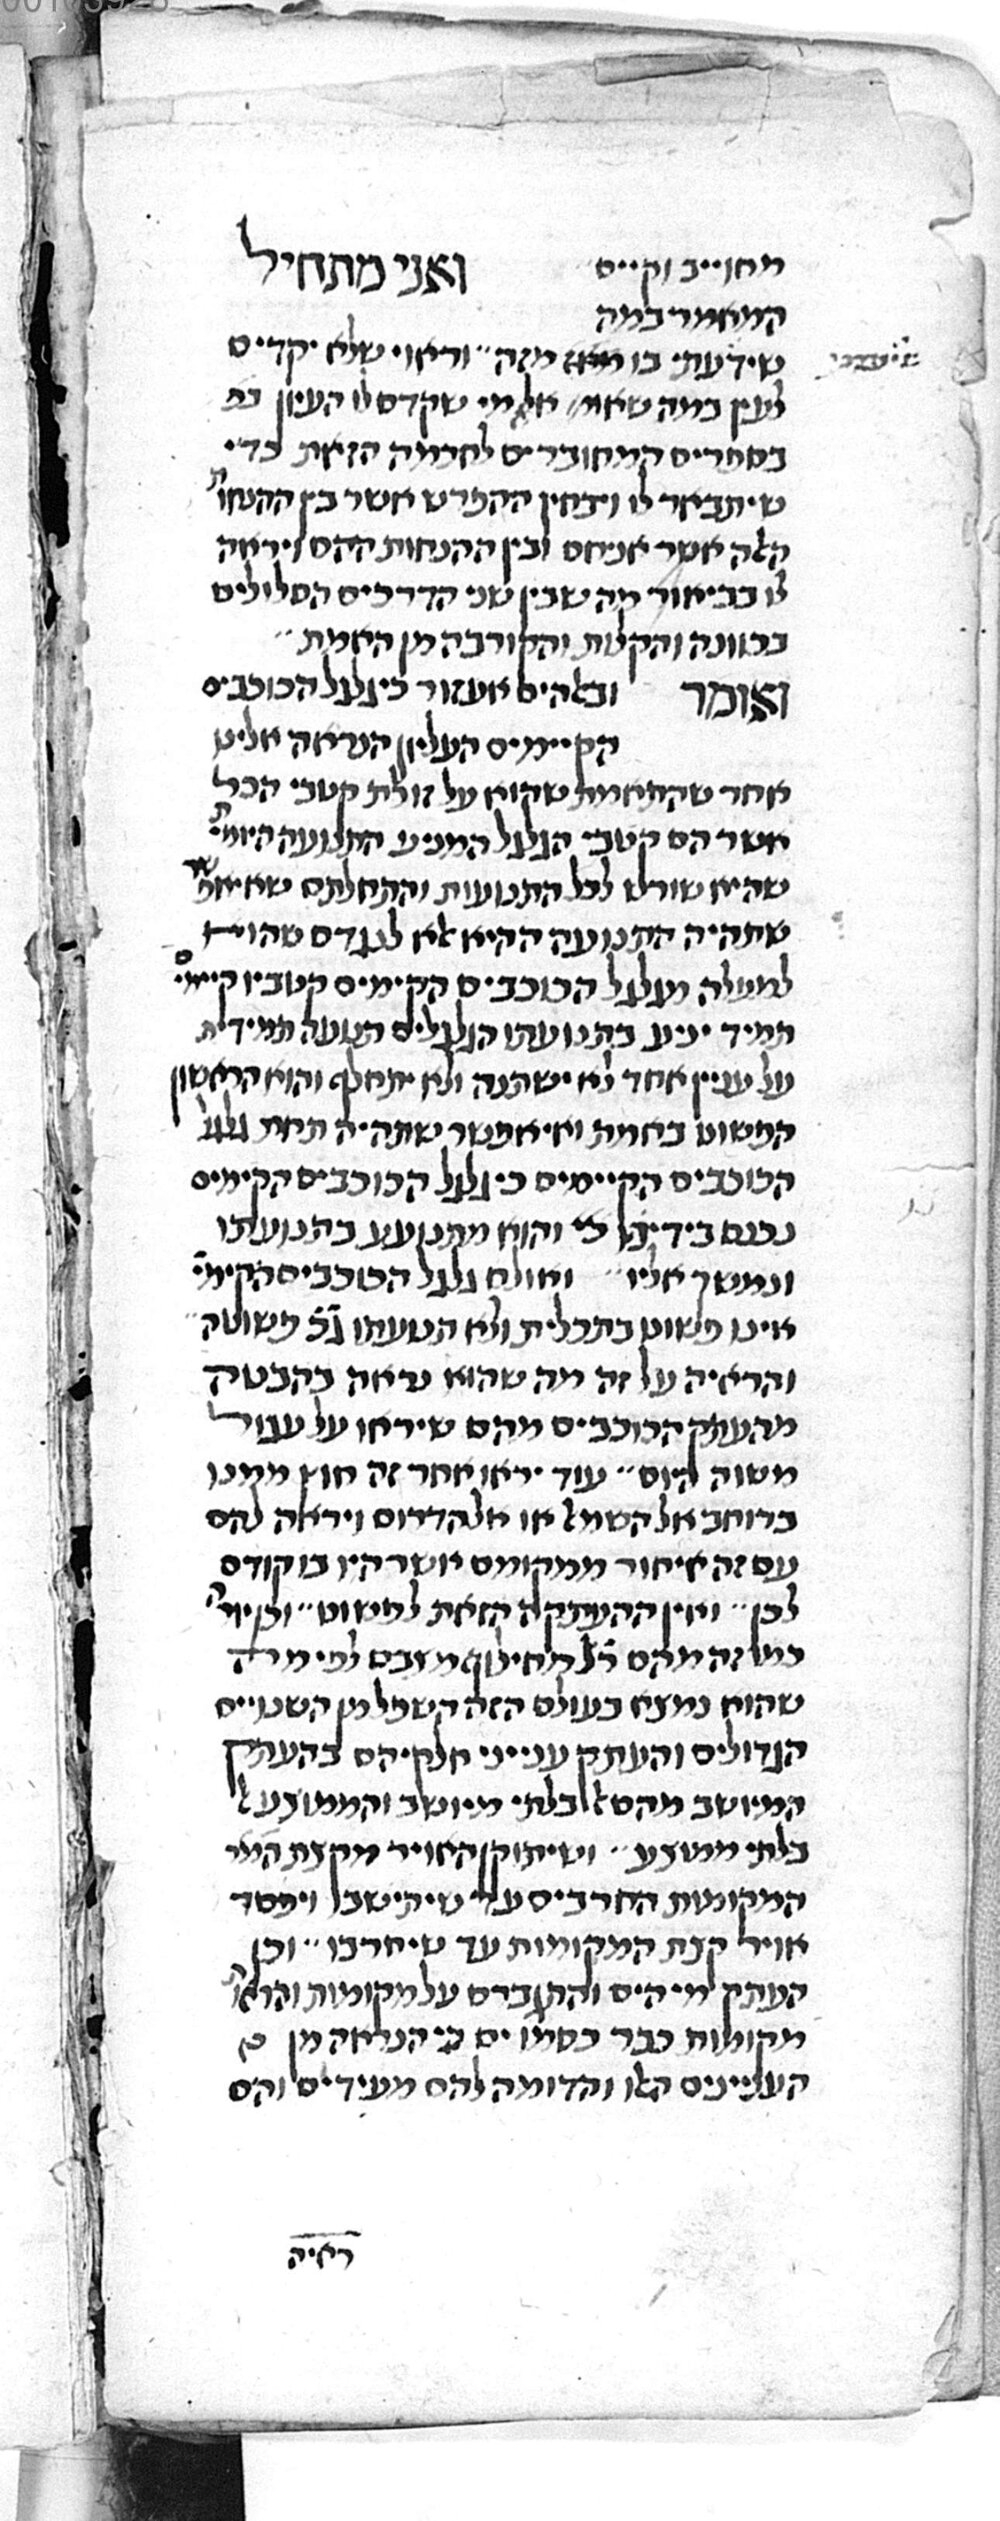 מחוייב וקיים ואני מתחיל
המאמר במה
שידעתי בו מזה״ וראוי שלא יקדים
לעיין במה שאומ׳ אלא מי שקדם לו העיון
בספרים המחוברים לחכמה הזאת כדי
שיתבאר לו ויבחין ההפרש אשר בין ההנחו׳
האלה אשר אניחם ובין ההנחות ההם ויראה
לו בביאור מה שבין שני הדרכים הסלולים
בכוונה והקלות והקורבה מן האמת״
ואומר ובאלהים אעזור כי גלגל הכוכבים
הקיימים העליון הנראה אלינו
אחר שהתאמת שהוא על זולת קטבי הכל
אשר הם קטבי הגלגל המניע התנועה היומי׳
שהיא שורש לכל התנועות והתחלתם שאי אפשר
שתהיה התנועה ההיא אלא לגרם שהוא
למעלה מגלגל הכוכבים הקימים קטביו קיימי׳
תמיד יניע בתנועתו הגלגלים תנועה תמידית
על עניין אחד לא ישתנה ולא יתחלף והוא הראשון
הפשוט באמת ואי אפשר שתהיה תחת גלגל
הכוכבים הקיימים כי גלגל הכוכבים הקימים
נכנס בידיה והוא מתנועע בתנועתו
ונמשך אליו״ ואולם גלגל הכוכבים הקימי׳
אינו פשוט בתכלית ולא תנועתו ג״כ פשוטה״
והראיה על זה מה שהוא נראה בהבטה
מהעתק הכוכבים מהם שיראו על עגול
משוה היום״ עוד יראו אחר זה חוץ ממנו
ברוחב אל השמאל או אל הדרום ויראה להם
עם זה איחור ממקומם אשר היו בו קודם
לכן״ ואין ההעתקה הזאת לפשוט״ וכן יור׳
כמו זה מהם ר״ל מחילוף מצבם לפי מה
שהוא נמצא בעולם הזה השפל מן השנויים
הגדולים והעתק ענייני חלקיהם בהעתק
המיושב מהם אל בלתי מיושב והממוצע אל
בלתי ממוצע״ ושיתוקן האויר מקצת
המקומות החרבים עד שיתישבו ויפסד
אויר קצת המקומות עד שיחרבו״ וכן
העתק מי הים והתגברם על מקומות והראו׳
מקומות כבר כסתו ים כי הנראה מן
העניינים האלו והדומה להם מעידים והם
ראיה